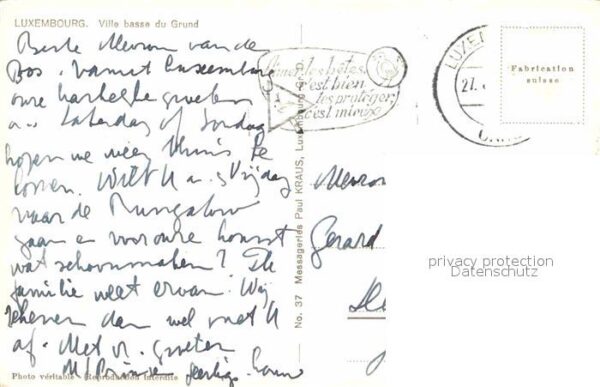 LUXEMBOURG. Ville basse du Grund
Beste Mevrouw van de
Bos. Vanuit Luxemburg
onze hartelijke groeten
Zaterdag of Zondag
hopen we weer thuis te
komen. Wilt U a.s Vrijdag
naar de Bungalow
gaan en voor onze komst
wat schoonmaken? De
familie weet ervan. Wij
rekenen dan wel met U
af. Met vr. groeten
Photo véritable - Reproduction interdite
No. 37 Messageries Paul KRAUS, Luxembourg
Aimer les bêtes,
c'est bien
les protéger,
c'est mieux
LUXEM
27.
Fabrication
suisse
Mevrou
Gerard
privacy protection
Datenschutz